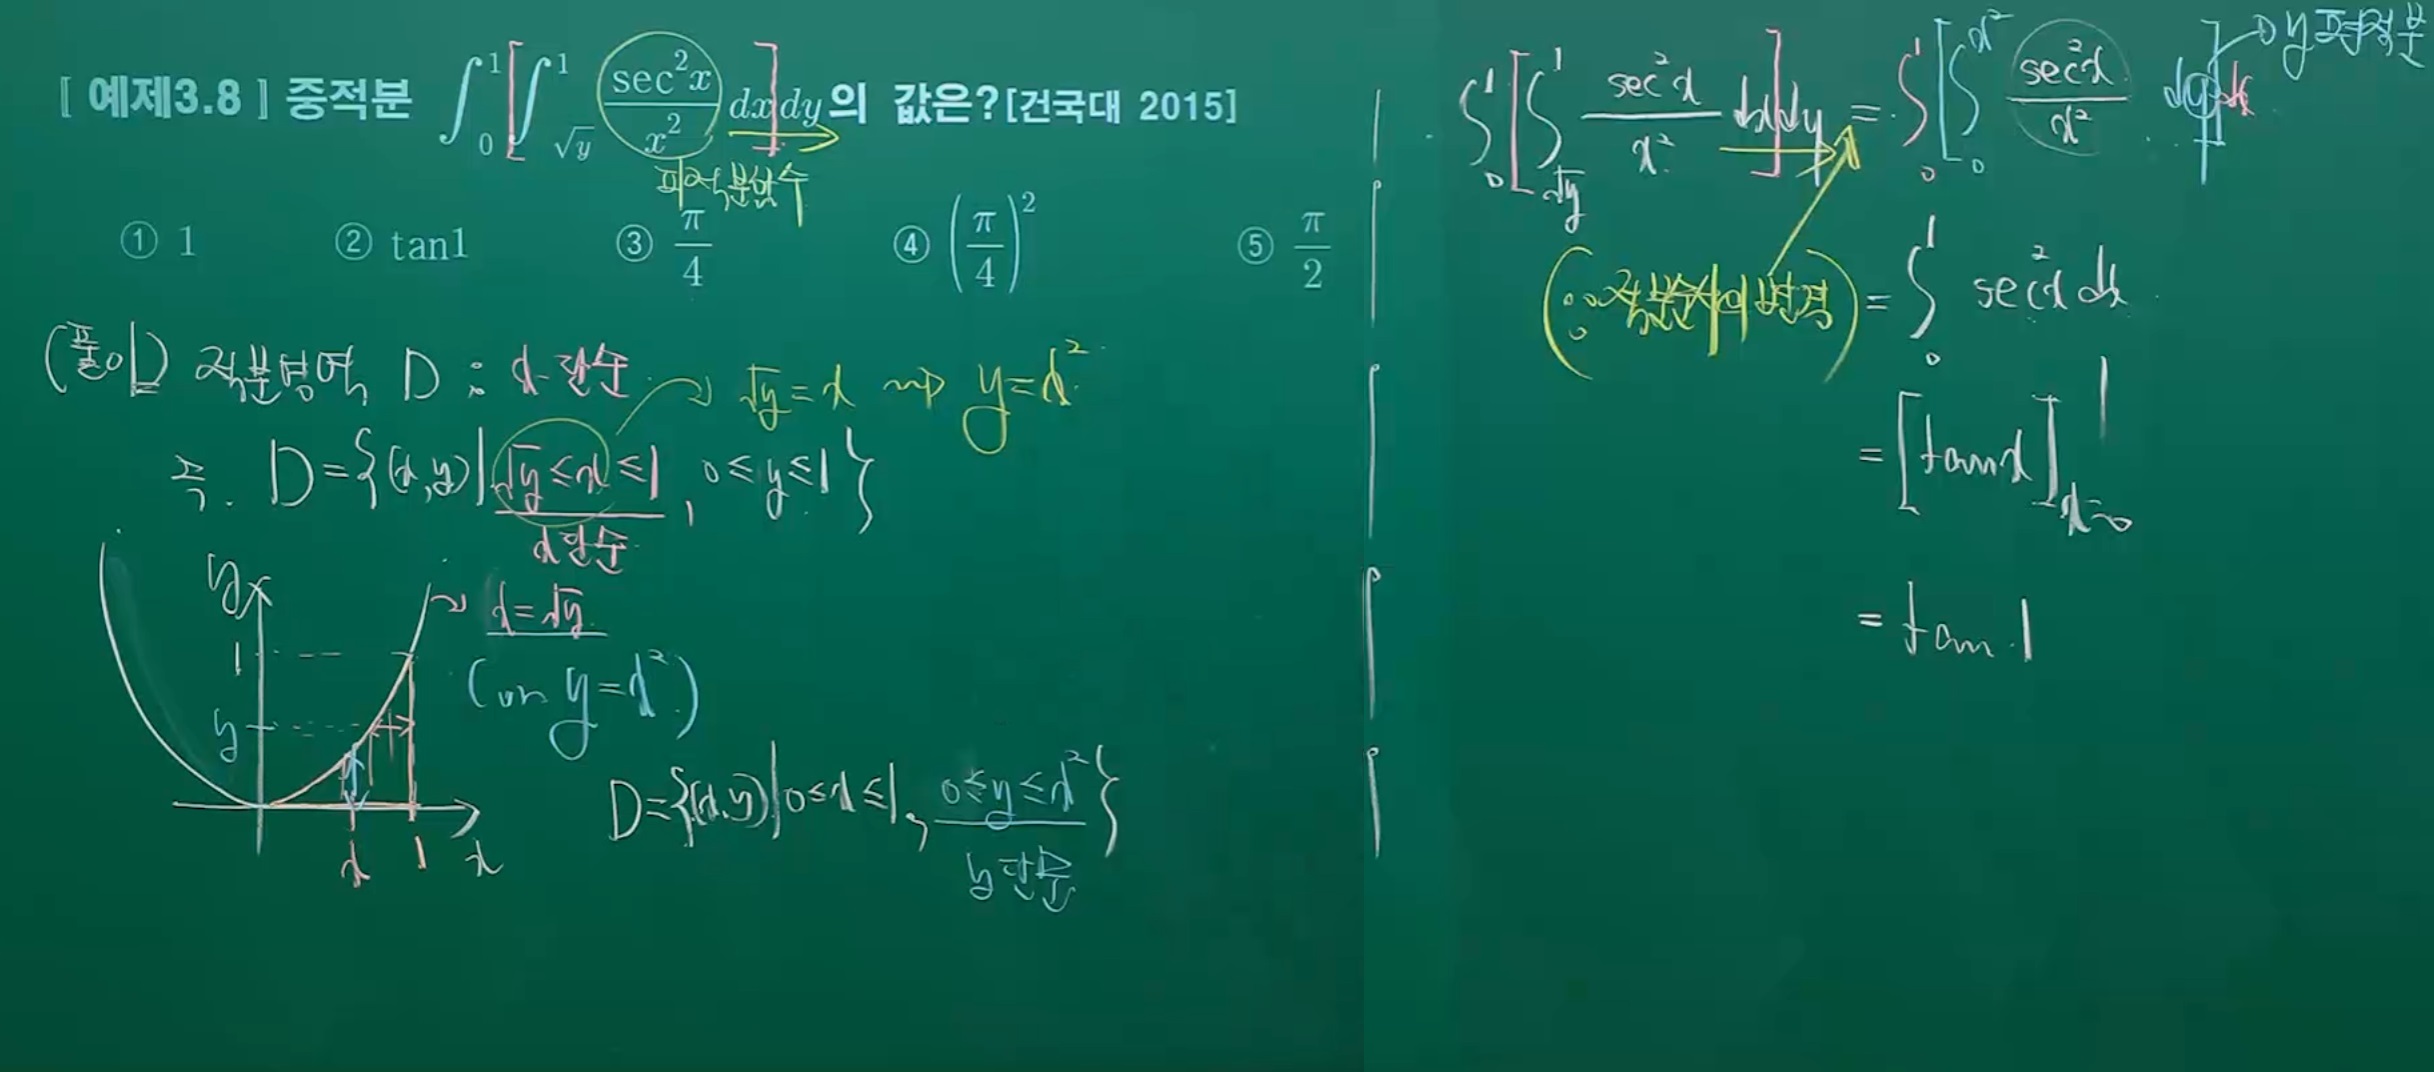 [ 예제3.8 ] 중적분 ∫₀¹[∫_{√y}^{1} sec²x/x² dx]dy의 값은?[건국대 2015]
피적분함수
① 1 ② tan1 ③ π/4 ④ (π/4)² ⑤ π/2
(풀이) 적분영역 D : x-단순 → √y = x ⇝ y = x²
즉. D = {(x,y) | √y ≤ x ≤ 1, 0 ≤ y ≤ 1}
x단순
y
x = √y
1
(or y = x²)
y
x 1 x
D = {(x,y) | 0 ≤ x ≤ 1, 0 ≤ y ≤ x²}
y단순
∫₀¹[∫_{√y}^{1} sec²x/x² dx]dy = ∫₀¹[∫₀^{x²} sec²x/x² dy]dx → y 편적분
(∵ 적분순서의 변경) = ∫₀¹ sec²x dx
= [tan x]_{x=0}^{1}
= tan 1